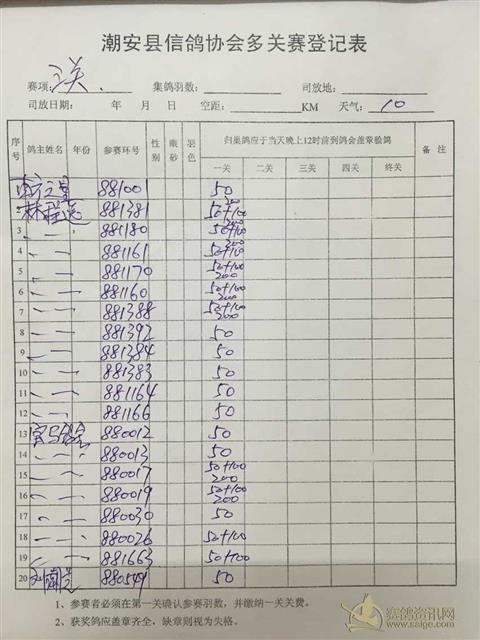 潮安县信鸽协会多关赛登记表
赛项: 三关. 集鸽羽数: 司放地:
司放日期: 年 月 日 空距: KM 天气: 10
序号 鸽主姓名 年份 参赛环号 性别 眼砂 羽色 归巢鸽应于当天晚上12时前到鸽会盖章验鸽 备注
一关 二关 三关 四关 终关
南方之星 881001 50
2 881381 50+100 200
3 881180 50+100 200
4 881161 50+100 200
5 881170 50+100
6 881160 50+100 200
7 881388 50+100 200
8 881392 50
9 881384 50
10 881383 50
11 881164 50
12 881166 50
13 880012 50
14 880013 50
15 880017 50+100 200
16 880019 50+100 200
17 880030 50
18 880026 50+100
19 881663 50+100
20 880549 50
1、参赛者必须在第一关确认参赛羽数，并缴纳一关关费。
2、获奖鸽应盖章齐全，缺章则视为失格。
赛鸽资讯网
www.saige.com